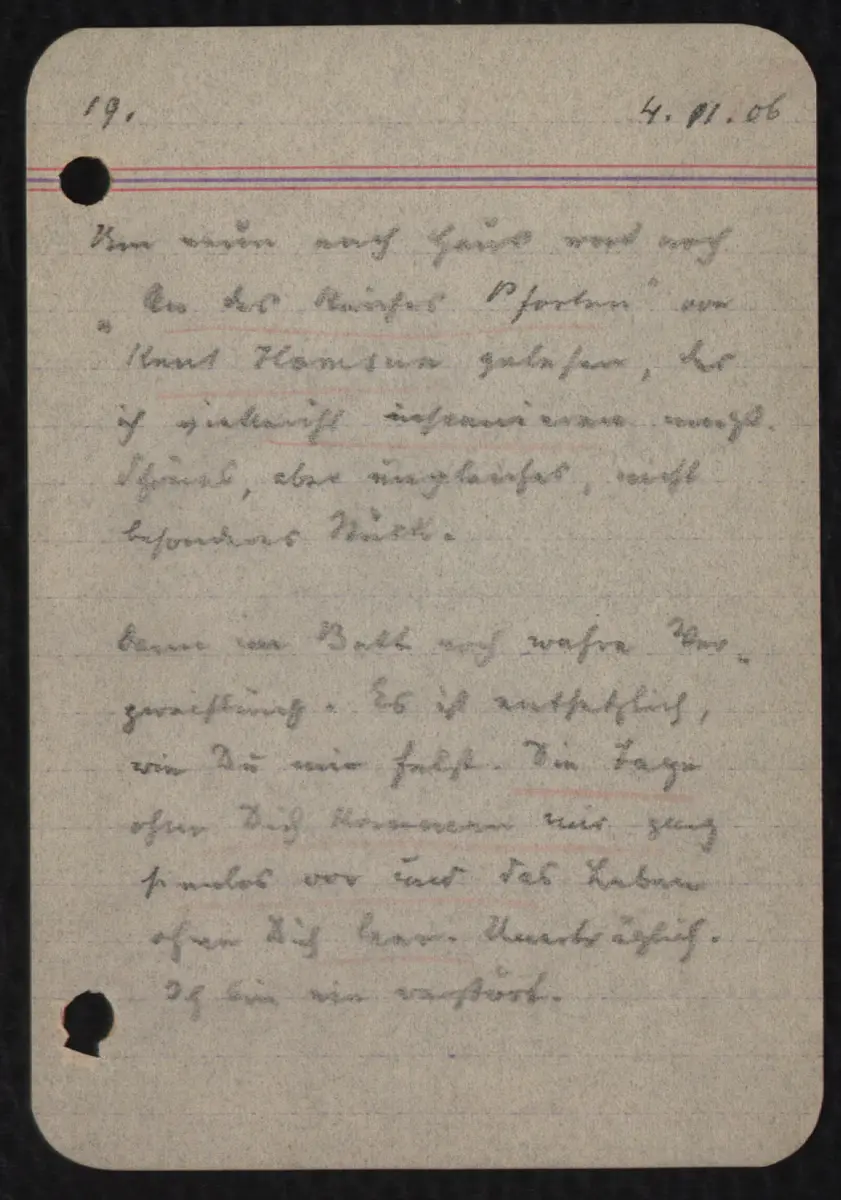 19.
4. VI. 06
Um neun nach Haus und noch
„An des Reiches Pforten“ von
Knut Hamsun gelesen, das
ich vielleicht inscenieren muß.
Schönes, aber ungleiches, nicht
besonderes Stück.
Dann im Bett noch wahre Ver-
zweiflung. Es ist entsetzlich,
wie Du mir fehlst. Die Tage
ohne Dich kommen mir ganz
sinnlos vor und das Leben
ohne Dich leer. Unerträglich.
Ich bin wie verstört.